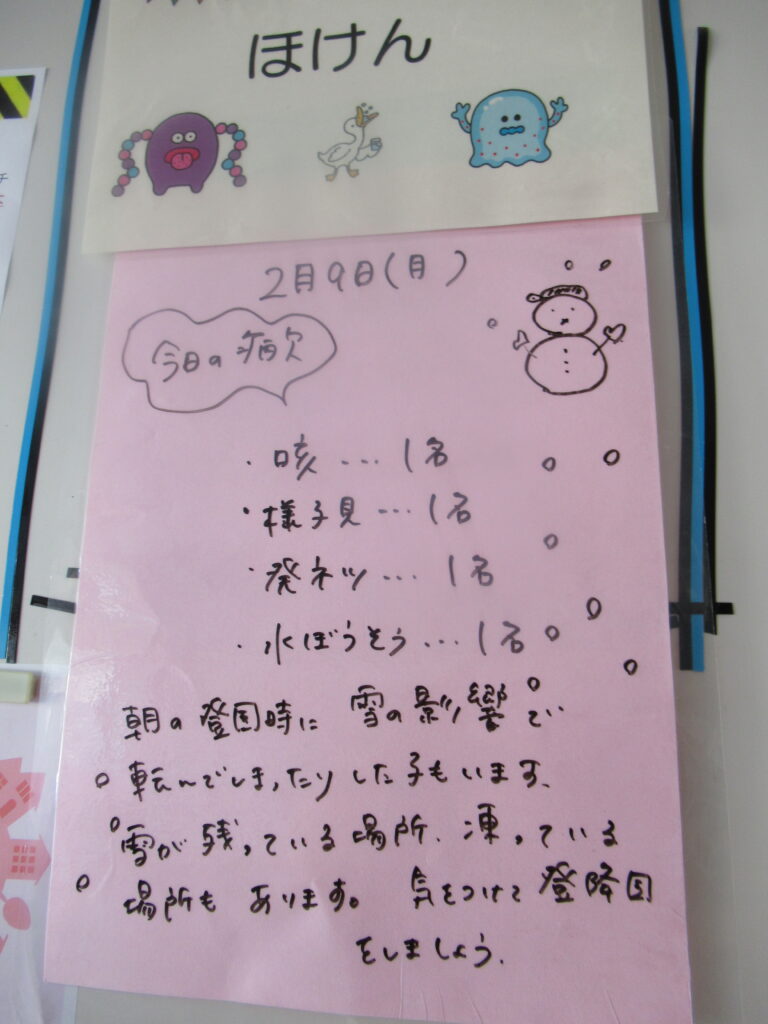 ほけん
2月9日(月)
今日の病欠
・咳...1名
・様子見...1名
・発ネツ...1名
・水ぼうそう...1名
朝の登園時に 雪の影響で
転んでしまったりした子もいます。
雪が残っている場所、凍っている
場所も あります。 気をつけて登降園
をしましょう。